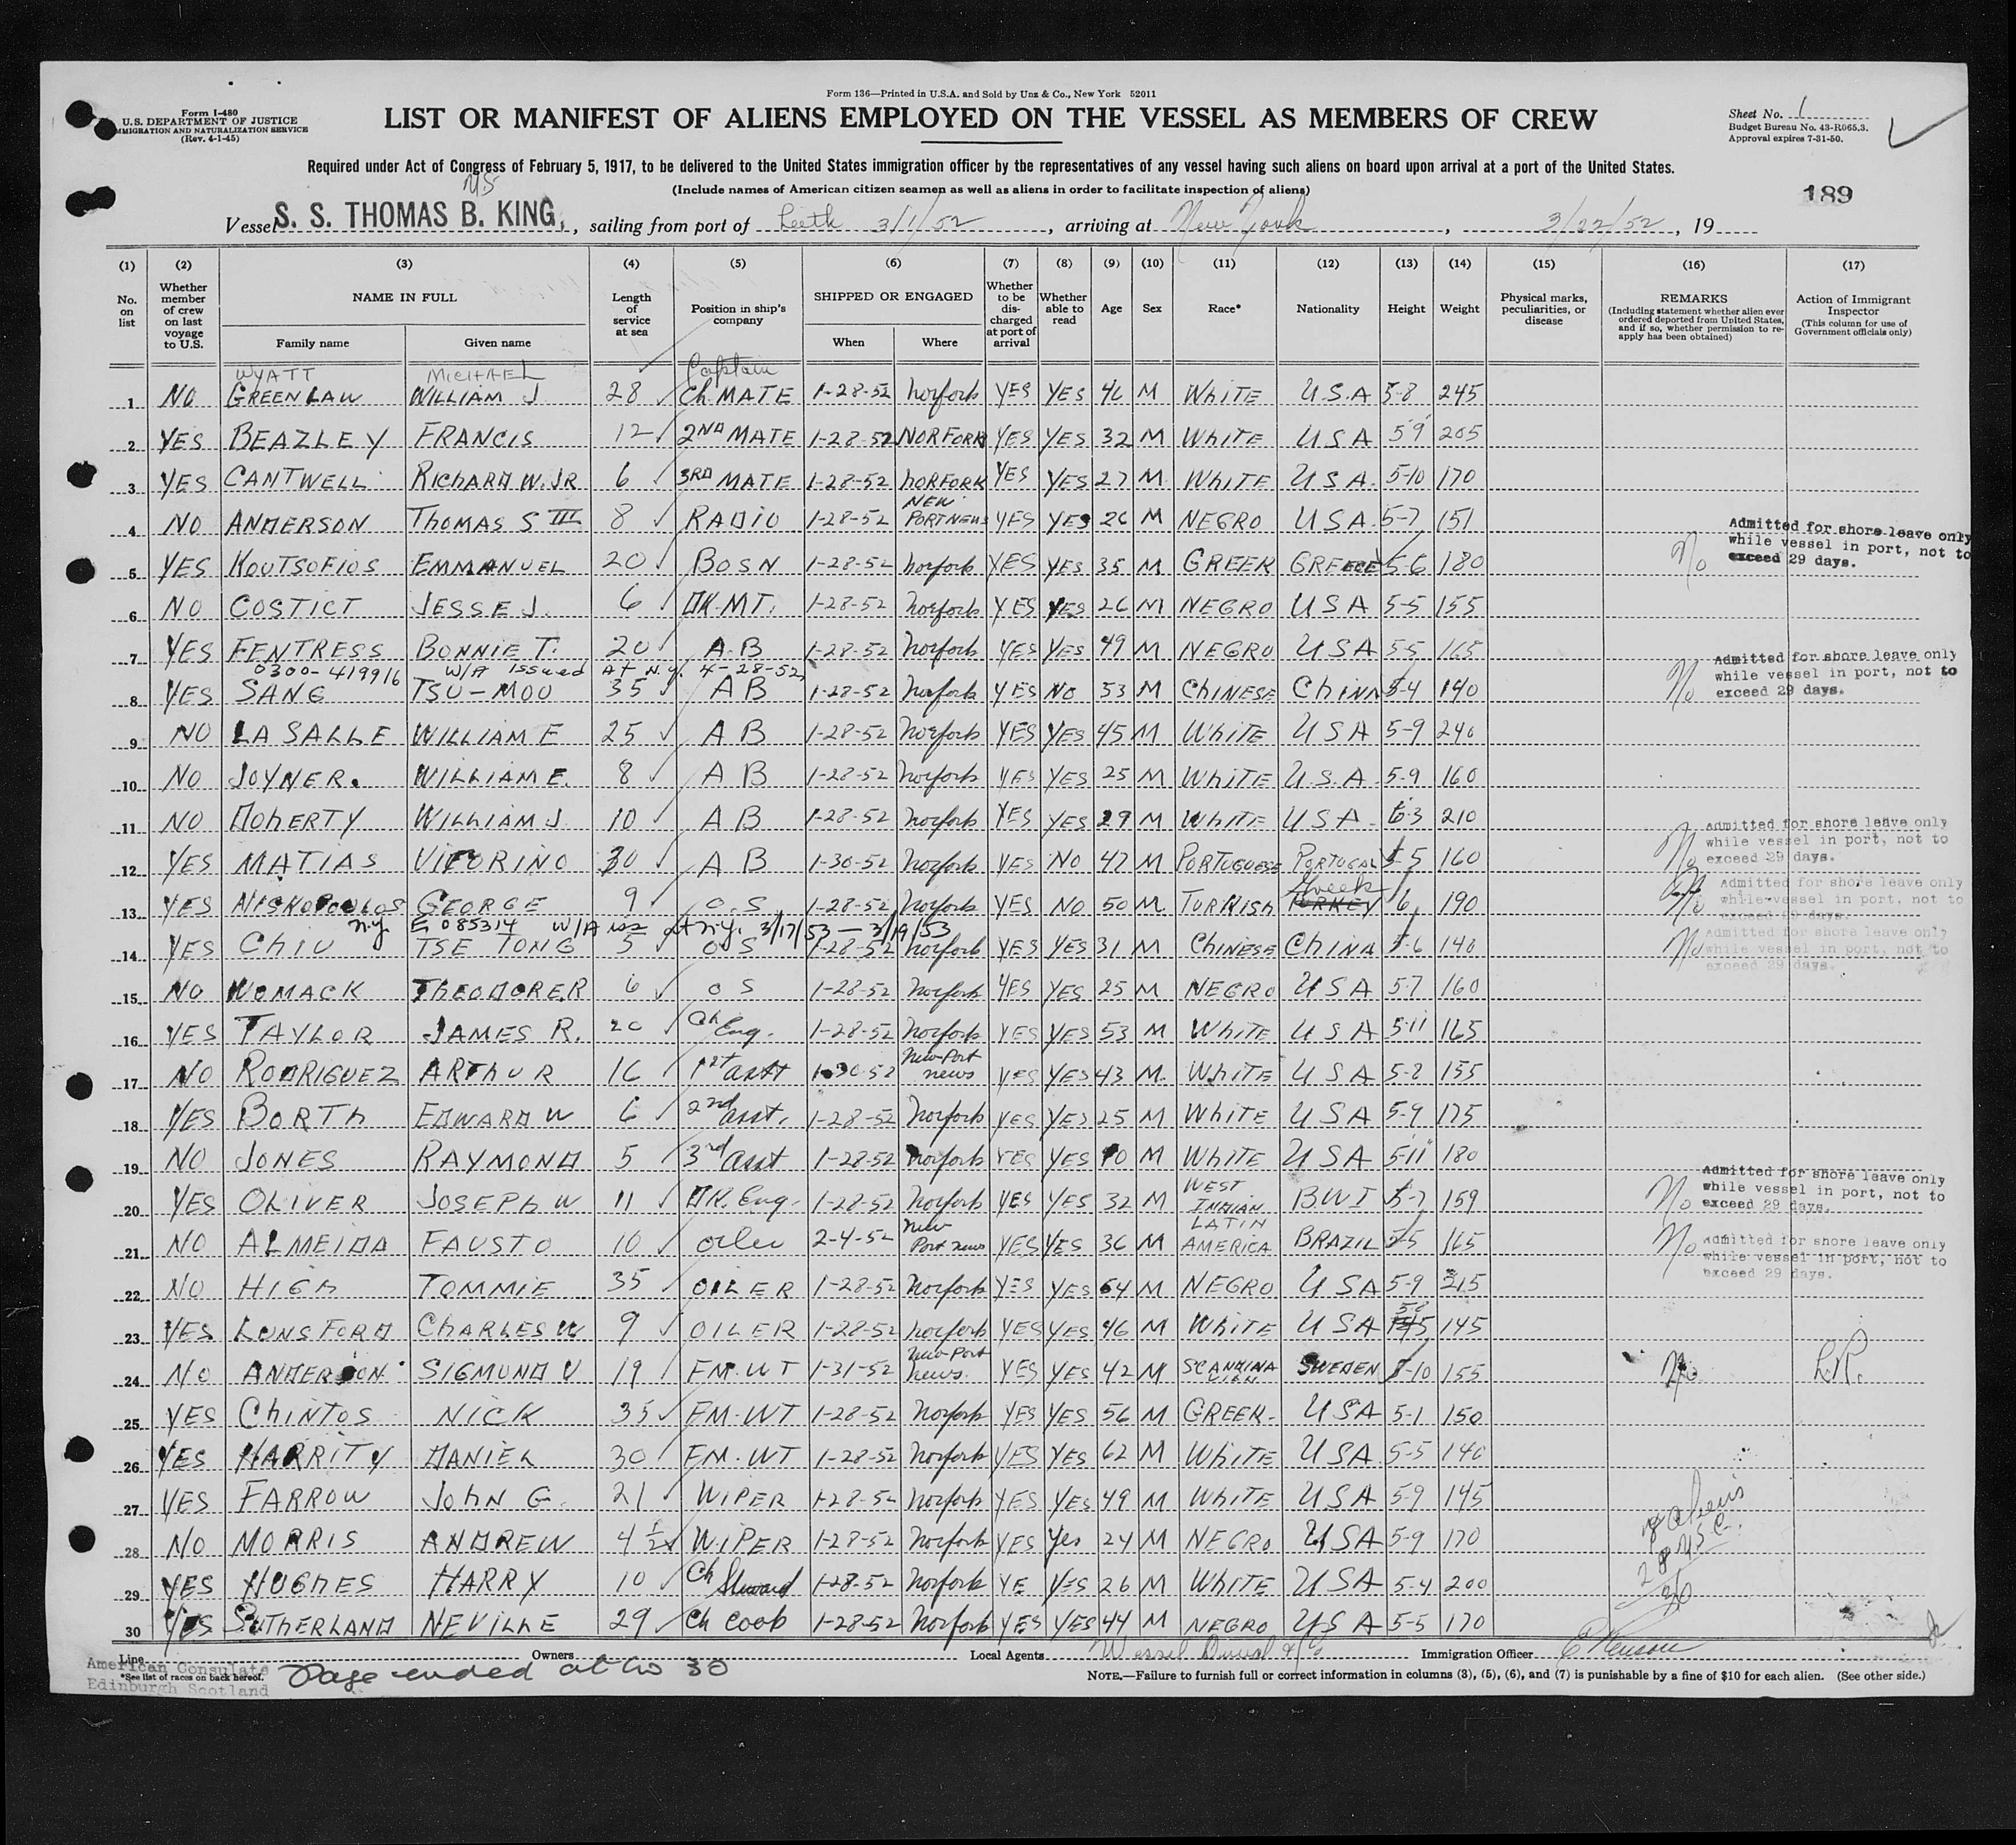 Form 136—Printed in U.S.A. and Sold by Unz & Co., New York 52011
Form I-480
U.S. DEPARTMENT OF JUSTICE
IMMIGRATION AND NATURALIZATION SERVICE
(Rev. 4-1-45)
LIST OR MANIFEST OF ALIENS EMPLOYED ON THE VESSEL AS MEMBERS OF CREW
Sheet No. 1
Budget Bureau No. 43-R065.3.
Approval expires 7-31-50.
Required under Act of Congress of February 5, 1917, to be delivered to the United States immigration officer by the representatives of any vessel having such aliens on board upon arrival at a port of the United States.
(Include names of American citizen seamen as well as aliens in order to facilitate inspection of aliens)
189
Vessel S. S. THOMAS B. KING, , sailing from port of Leith 3/1/52, arriving at New York, 3/22/52, 19
(1) No. on list
(2) Whether member of crew on last voyage to U.S.
(3) NAME IN FULL Family name Given name
(4) Length of service at sea
(5) Position in ship's company
(6) SHIPPED OR ENGAGED When Where
(7) Whether to be discharged at port of arrival
(8) Whether able to read
(9) Age
(10) Sex
(11) Race*
(12) Nationality
(13) Height
(14) Weight
(15) Physical marks, peculiarities, or disease
(16) REMARKS (Including statement whether alien ever ordered deported from United States, and if so, whether permission to reapply has been obtained)
(17) Action of Immigrant Inspector (This column for use of Government officials only)
WYATT MICHAEL Captain
1 NO GREENLAW WILLIAM J 28 Ch MATE 1-28-52 Norfork YES YES 46 M WHITE U.S.A 5-8 245
2 YES BEAZLEY FRANCIS 12 2ND MATE 1-28-52 NORFORK YES YES 32 M WHITE USA 5 9 205
3 YES CANTWELL RICHARD W. JR 6 3RD MATE 1-28-52 NORFORK YES YES 27 M WHITE USA. 5-10 170
4 NO ANDERSON THOMAS S III 8 RADIO 1-28-52 NEW PORT NEWS YES YES 26 M NEGRO USA 5-7 151
5 YES KOUTSOFIOS EMMANUEL 20 BOSN 1-28-52 Norfork YES YES 35 M GREEK GREECE 5-6 180 No Admitted for shore leave only while vessel in port, not to exceed 29 days.
6 NO COSTICT JESSE J. 6 DK-MT. 1-28-52 Norfork YES YES 26 M NEGRO USA 5-5 155
7 YES FENTRESS BONNIE T. 20 A.B 1-28-52 Norfork YES YES 49 M NEGRO USA 5-5 165
0300-419916 W/A issued At N.Y. 4-28-52
8 YES SANG TSU-MOU 35 AB 1-28-52 Norfork YES NO 53 M CHINESE CHINA 5-4 140 No Admitted for shore leave only while vessel in port, not to exceed 29 days.
9 NO LA SALLE WILLIAM E 25 AB 1-28-52 Norfork YES YES 45 M WHITE USA 5-9 240
10 NO JOYNER. WILLIAM E. 8 AB 1-28-52 Norfork YES YES 25 M WHITE U.S.A. 5-9 160
11 NO DOHERTY WILLIAM J 10 AB 1-28-52 Norfork YES YES 29 M WHITE USA. 6-3 210
12 YES MATIAS VITORINO 30 AB 1-30-52 Norfork YES NO 47 M PORTUGUESE PORTUGAL 5-5 160 No Admitted for shore leave only while vessel in port, not to exceed 29 days.
13 YES GEORGE 9 O.S 1-28-52 Norfork YES NO 50 M TURKISH Greek TURKEY 6 190 No Admitted for shore leave only while vessel in port, not to exceed 29 days.
n.y. E 085314 W/A iss at n.y. 3/17/53 — 3/19/53
14 YES CHIU TSE TONG 5 OS 1-28-52 Norfork YES YES 31 M CHINESE CHINA 5-6 140 No Admitted for shore leave only while vessel in port, not to exceed 29 days.
15 NO WOMACK THEODORE R 6 OS 1-28-52 Norfork YES YES 25 M NEGRO USA 5-7 160
16 YES TAYLOR JAMES R. 20 Ch Eng. 1-28-52 Norfork YES YES 53 M WHITE USA 5-11 165
17 NO RODRIGUEZ ARTHUR 16 1st asst 1-30-52 New Port news YES YES 43 M. WHITE USA 5-8 155
18 YES BORTH EDWARD W 6 2nd asst. 1-28-52 Norfork YES YES 25 M WHITE USA 5-9 175
19 NO JONES RAYMOND 5 3rd asst 1-28-52 Norfork YES YES M WHITE USA 5-11 180
20 YES OLIVER JOSEPH W 11 DK. Eng. 1-28-52 Norfork YES YES 32 M WEST INDIAN B.W.I 5-7 159 No Admitted for shore leave only while vessel in port, not to exceed 29 days.
21 NO ALMEIDA FAUSTO 10 oiler 2-4-52 New Port news YES YES 36 M LATIN AMERICA BRAZIL 5-5 165 No Admitted for shore leave only while vessel in port, not to exceed 29 days.
22 NO HIGH TOMMIE 35 OILER 1-28-52 Norfork YES YES 64 M NEGRO USA 5-9 215
23 YES LUNSFORD CHARLES W 9 OILER 1-28-52 Norfork YES YES 46 M WHITE USA 5-8 145
24 NO ANDERSON SIGMUND V 19 FM-WT 1-31-52 New Port news. YES YES 42 M SCANDINAVIAN SWEDEN 5-10 155 No L.R.
25 YES CHINTOS NICK 35 FM-WT 1-28-52 Norfork YES YES 56 M GREEK USA 5-1 150
26 YES HARRITY DANIEL 30 FM-WT 1-28-52 Norfork YES YES 62 M WHITE USA 5-5 140
27 YES FARROW JOHN G. 21 WIPER 1-28-52 Norfork YES YES 49 M WHITE USA 5-9 145
28 NO MORRIS ANDREW 4 1/2 WIPER 1-28-52 Norfork YES Yes 24 M NEGRO USA 5-9 170
29 YES HUGHES HARRY 10 Ch Steward 1-28-52 Norfork YE YES 26 M WHITE USA 5-4 200
30 YES SUTHERLAND NEVILLE 29 Ch cook 1-28-52 Norfork YES YES 44 M NEGRO USA 5-5 170
aliens
30
Line Owners Local Agents Immigration Officer
*See list of races on back hereof.
American Consulate
Edinburgh Scotland
Page ended at no 30
NOTE.—Failure to furnish full or correct information in columns (3), (5), (6), and (7) is punishable by a fine of $10 for each alien. (See other side.)